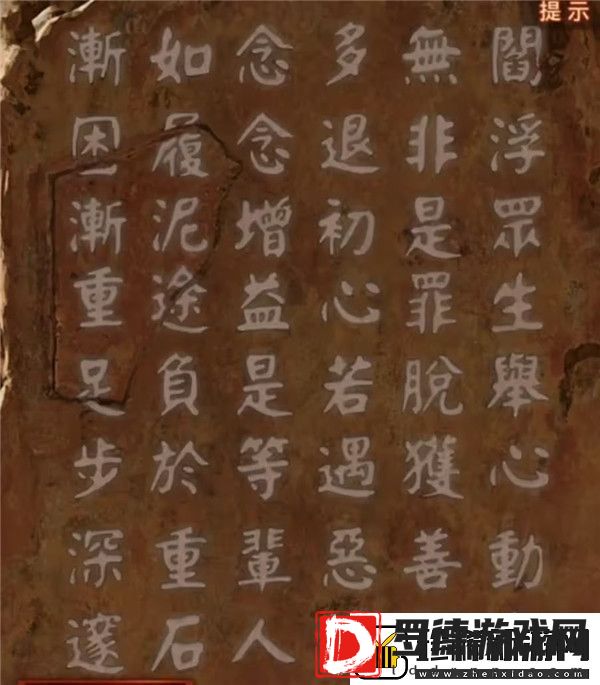 提示
閻浮眾生舉心動
無非是罪脫獲善
多退初心若遇惡
念念增益是等輩人
如履泥途負於重石
漸困漸重足步深邃
www.zhenxidao.com